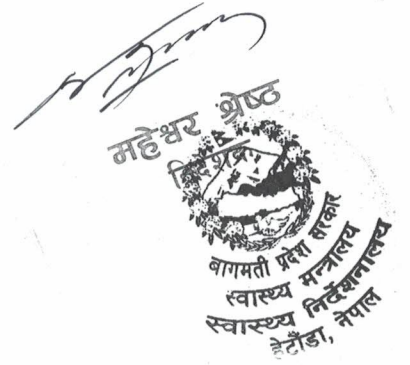 महेश्वर श्रेष्ठ
निर्देशक
बागमती प्रदेश सरकार
स्वास्थ्य मन्त्रालय
स्वास्थ्य निर्देशनालय
हेटौंडा, नेपाल